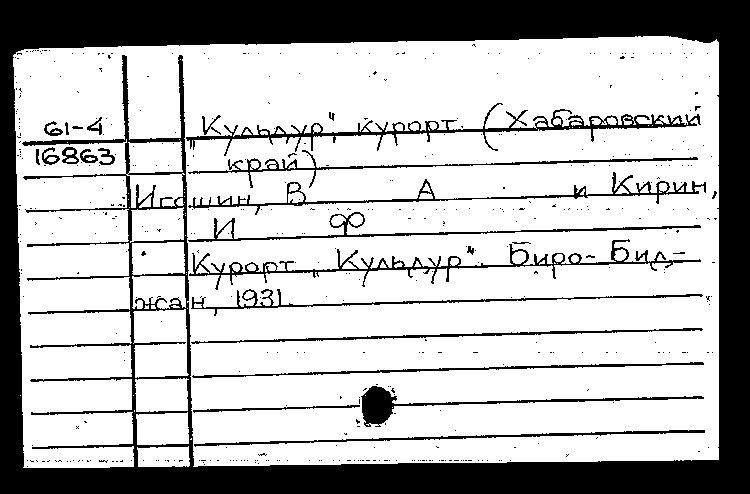 61-4 „Кульдур", курорт (Хабаровский
16863 край)
Игошин, В А и Кирин,
И Ф
Курорт „Кульдур". Биро-Бид-
жан, 1931.